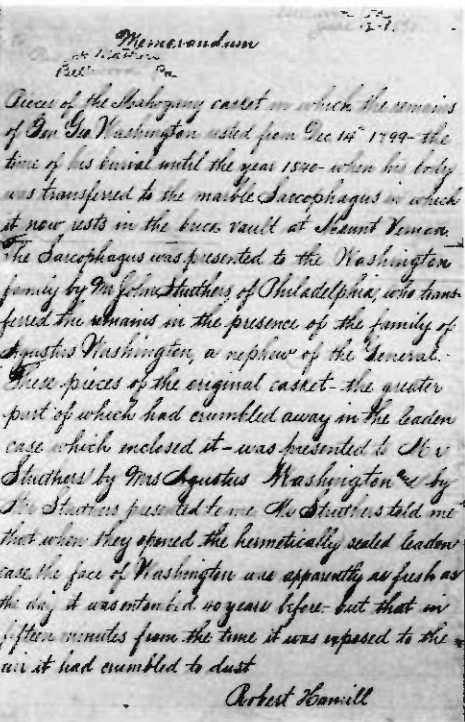 Memorandum
Bellwood Pa
Pieces of the Mahogany casket in which the remains
of Gen Geo Washington rested from Dec 14th 1799 - the
time of his burial until the year 1840 - when his body
was transferred to the marble Sarcophagus in which
it now rests in the brick vault at Mount Vernon.
The Sarcophagus was presented to the Washington
family by Mr John Struthers, of Philadelphia, who trans-
ferred the remains in the presence of the family of
Agustus Washington, a nephew of the General.-
These pieces of the original casket - the greater
part of which had crumbled away in the leaden
case which enclosed it - was presented to Mr
Struthers by Mrs Agustus Washington and by
Mr Struthers presented to me Mr Struthers told me
that when they opened the hermetically sealed leaden
case the face of Washington was apparently as fresh as
the day it was entombed 40 years before - but that in
fifteen minutes from the time it was exposed to the
air it had crumbled to dust
Robert Hamill